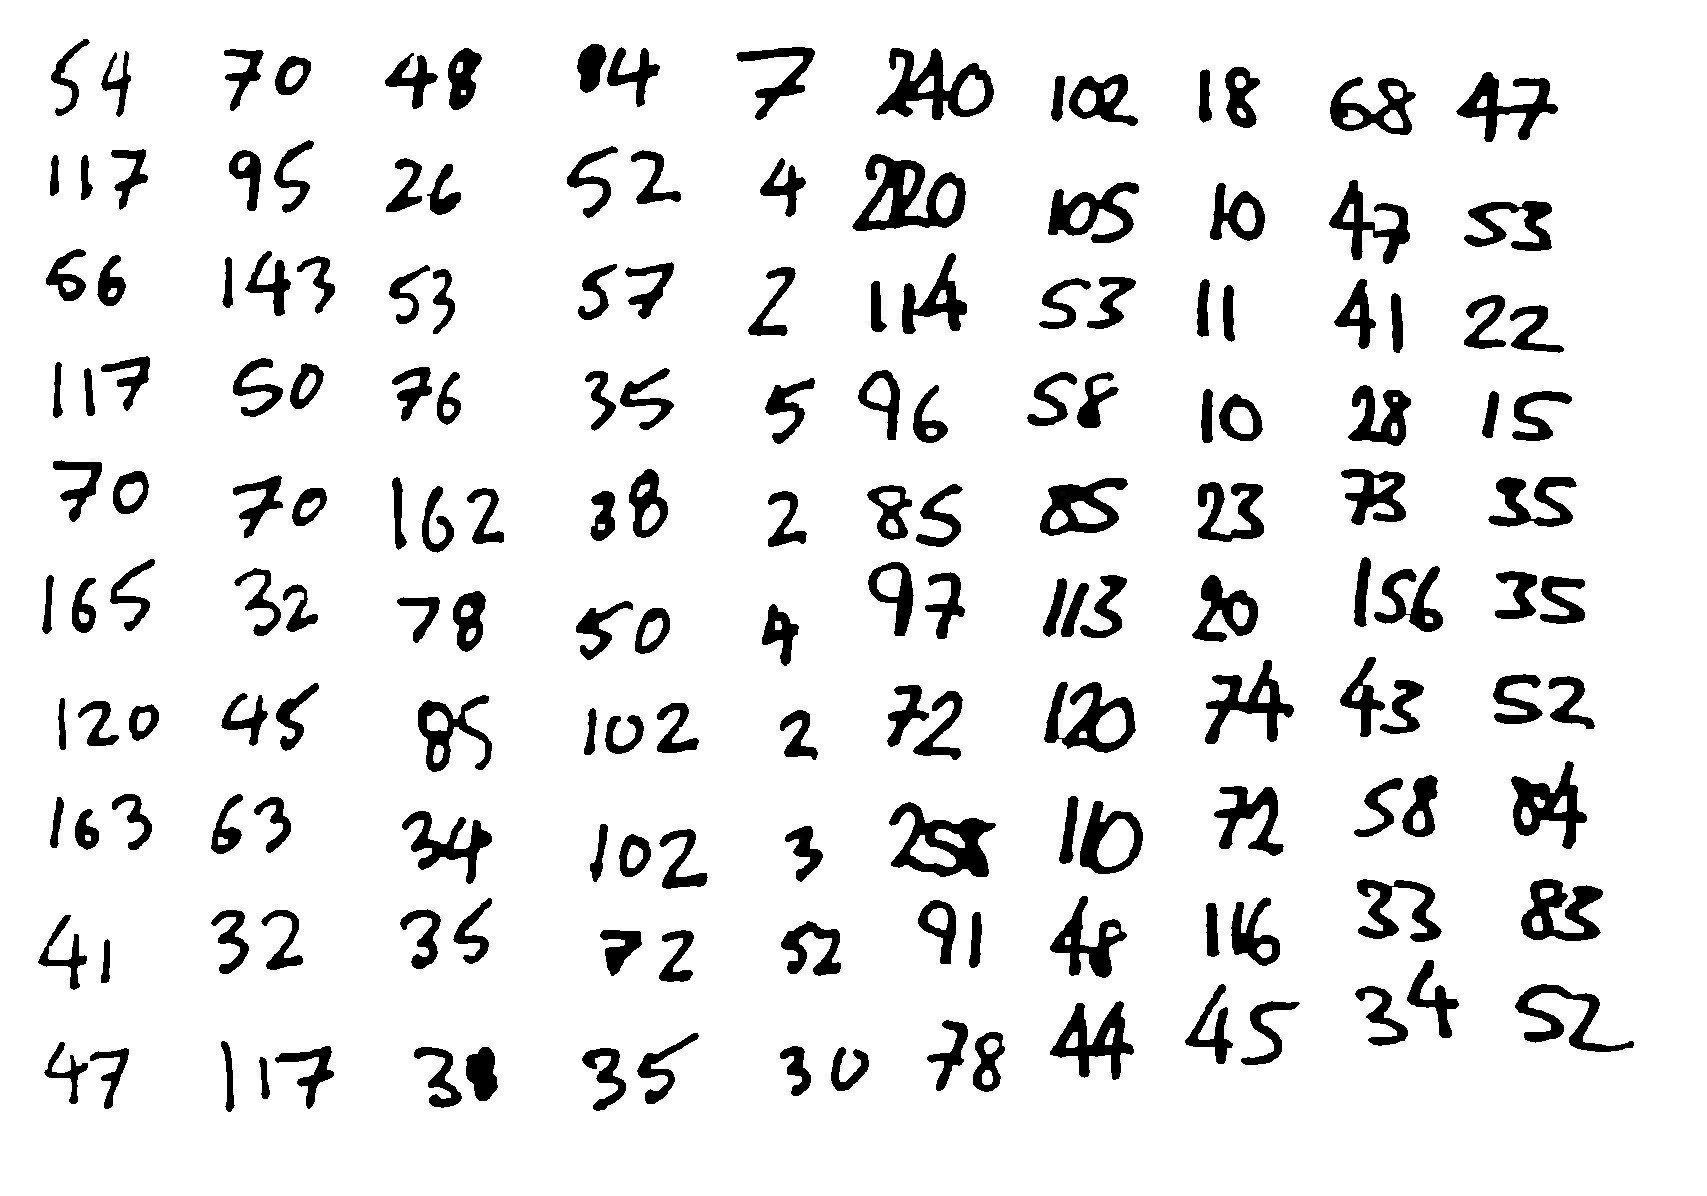 54 70 48 84 7 240 102 18 68 47
117 95 26 52 4 220 105 10 47 53
66 143 53 57 2 114 53 11 41 22
117 50 76 35 5 96 58 10 28 15
70 70 162 38 2 85 85 23 73 35
165 32 78 50 4 97 113 20 156 35
120 45 85 102 2 72 120 74 43 52
163 63 34 102 3 72 58 84
41 32 35 72 52 91 48 116 33 83
47 117 38 35 30 78 44 45 34 52